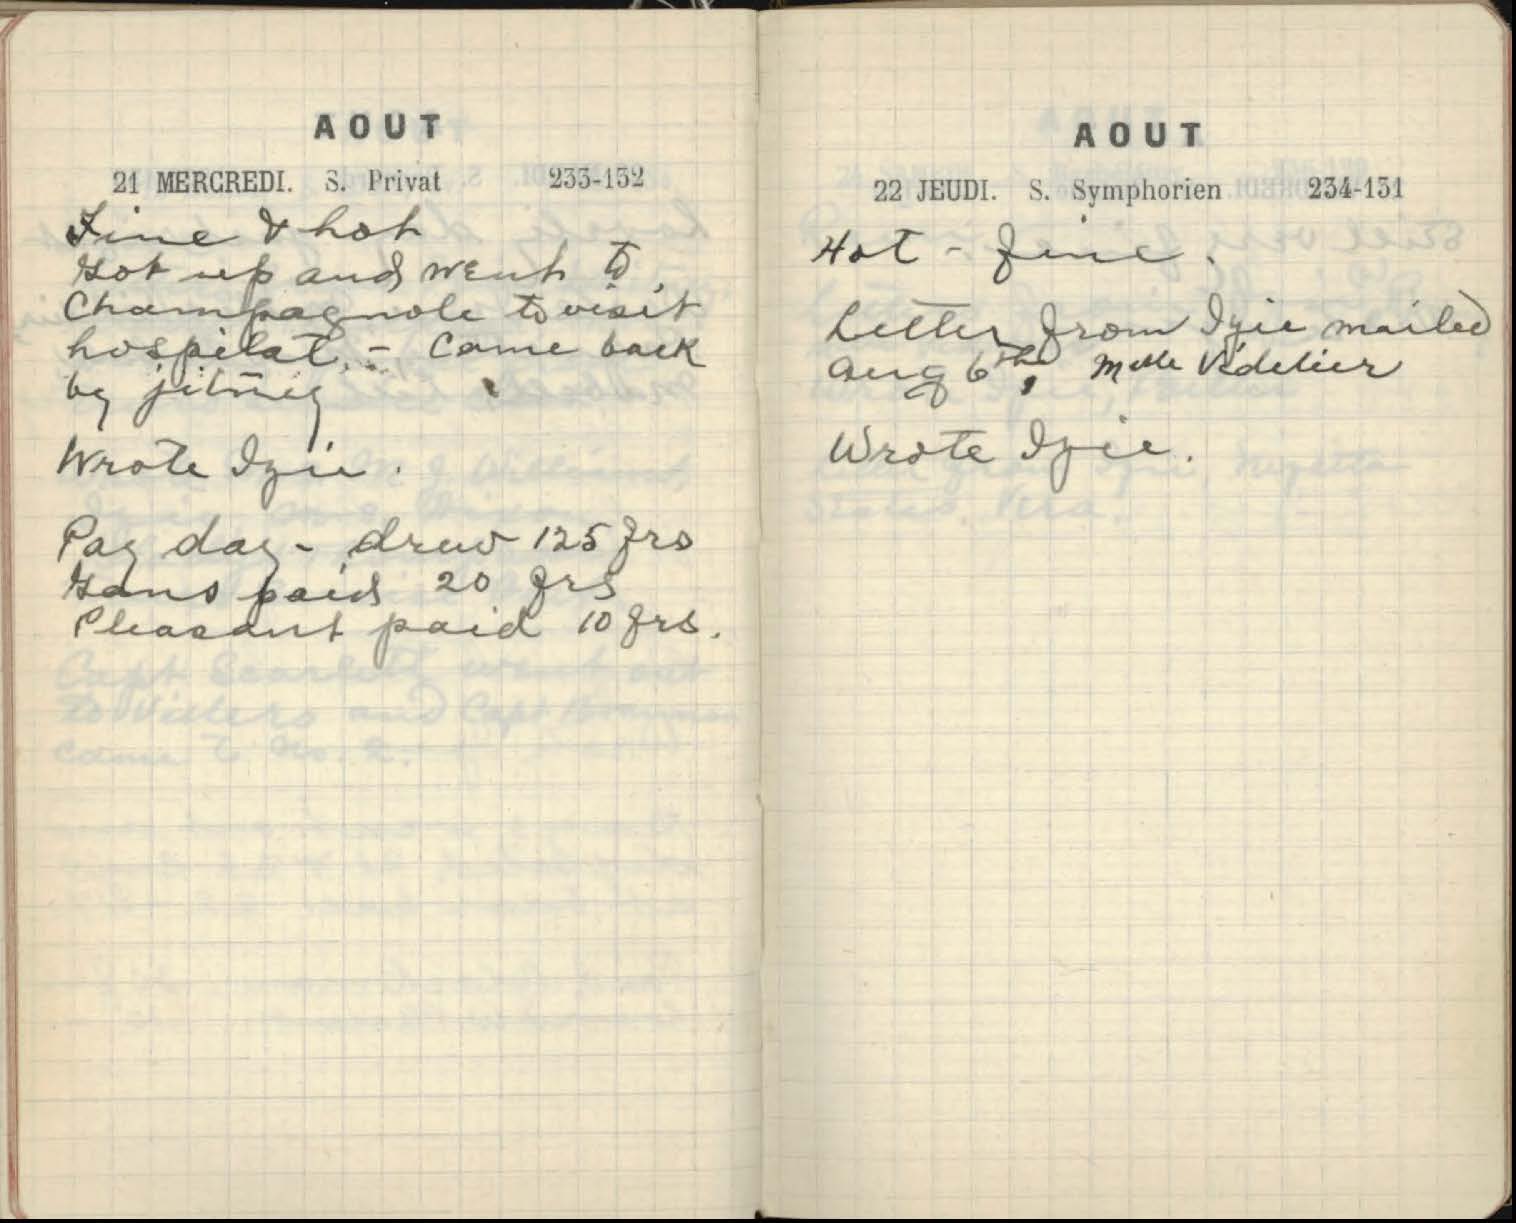 AOUT
21 MERCREDI. S. Privat 233-132
Fine & hot
Got up and went to
Champagnole to visit
hospital. - Came back
by jitney
Wrote Izie.
Pay day - drew 125 frs
Gans paid 20 frs
Pleasant paid 10 frs.
Capt Scarlett went out
to Villers and Capt
came to No. 2.
AOUT
22 JEUDI. S. Symphorien 234-131
Hot - fine.
Letter from Izie mailed
Aug 6th, Mlle Videlier
Wrote Izie.